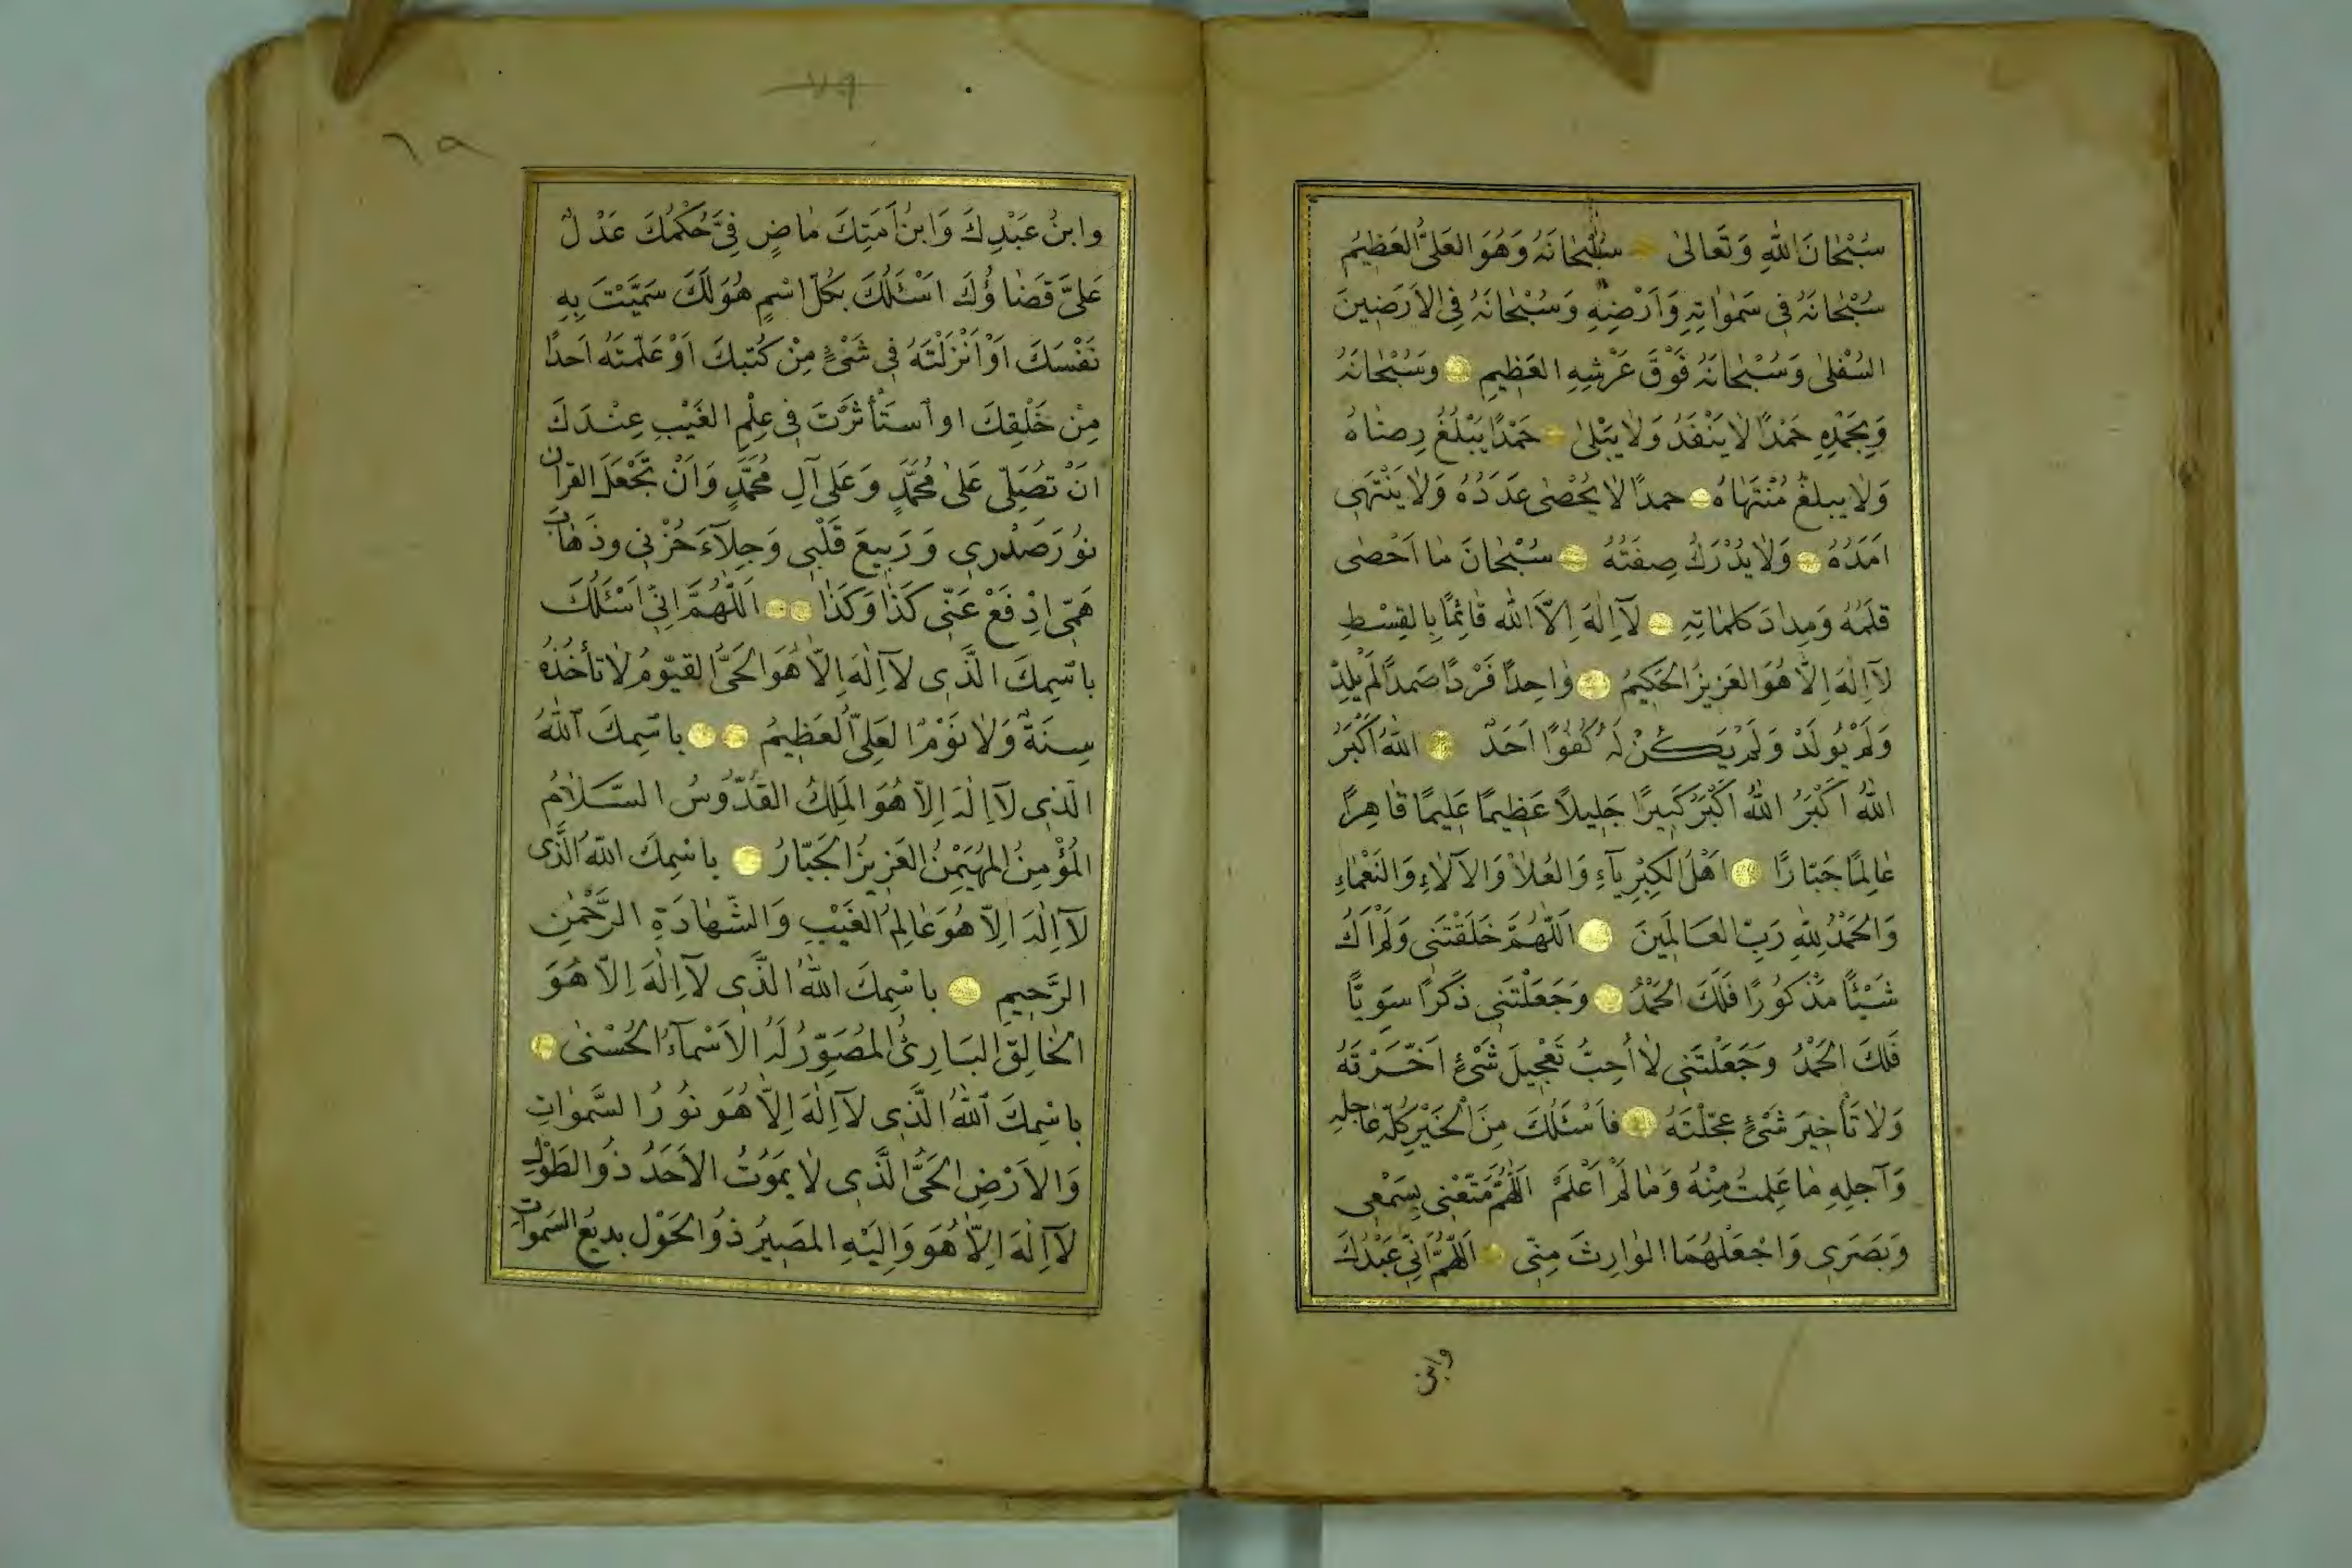 سُبْحَانَ اللهِ وَتَعَالىٰ سُبْحَانَهُ وَهُوَ العَلِىُّ العَظِيمُ
سُبْحَانَهُ فِى سَمٰوَاتِهِ وَاَرْضِهِ وَسُبْحَانَهُ فِى الاَرَضِينَ
السُفْلىٰ وَسُبْحَانَهُ فَوْقَ عَرْشِهِ العَظِيمِ وَسُبْحَانَهُ
وَبِحَمْدِهِ حَمْدًا لاٰ يَنْفَدُ وَلاٰ يَبْلىٰ حَمْدًا يَبْلُغُ رِضَاهُ
وَلاٰ يبلغُ مُنْتَهَاهُ حمدًا لاٰ يُحْصٰى عَدَدُهُ وَلاٰ يَنْتَهِى
اَمَدُهُ وَلاٰ يُدْرَكُ صِفَتُهُ سُبْحَانَ مٰا اَحْصٰى
قَلَمُهُ وَمِدٰادَ كلمٰاتِهِ لآ اِلٰهَ اِلاَّ الله قٰائِمًا بِالقِسْطِ
لآ اِلٰهَ اِلاَّ هُوَ العَزِيزُ الحَكِيمُ وٰاحِدًا فَرْدًا صَمَدًا لَمْ يَلِدْ
وَلَمْ يُولَدْ وَلَمْ يَكُنْ لَهُ كُفُوًا اَحَدٌ اللهُ اَكْبَرُ
اللهُ اَكْبَرُ اللهُ اَكْبَرُ كَبِيرًا جَلِيلاً عَظِيمًا عَلِيمًا قٰاهِرًا
عٰالِمًا جَبّارًا اَهْلَ الكِبْرِيآءِ وَالعُلاٰ وَالآلآءِ وَالنَعْمٰاءِ
وَالحَمْدُ لِلّٰهِ رَبِّ العَالَمِينَ اَللّٰهُمَّ خَلَقْتَنِى وَلَمْ اَكُ
شَيْئًا مَذْكُورًا فَلَكَ الحَمْدُ وَجَعَلْتَنِى ذَكَرًا سَوِيًّا
فَلَكَ الحَمْدُ وَجَعَلْتَنِى لاٰ اُحِبُّ تَعْجِيلَ شَىْءٍ اَخَّرْتَهُ
وَلاٰ تَأخِيرَ شَىْءٍ عَجّلْتَهُ فَاَسْئَلُكَ مِنَ الْخَيْرِ كُلّهِ عٰاجلِهِ
وَآجلِهِ مٰا عَلِمتُ مِنْهُ وَمٰا لَمْ اَعْلَمْ اَللّٰهُمَّ مَتّعْنِى بِسَمْعِى
وَبَصَرِى وَاجْعَلْهُمَا الوٰارِثَ مِنّى اَللّٰهُمَّ اِنِّى عَبْدُكَ
وابن
٧٩
٦٩
وابنُ عَبْدِكَ وَابنُ اَمَتِكَ مٰاضٍ فِىَّ حُكْمُكَ عَدْلٌ
عَلىَّ قَضٰاؤُكَ اَسْئَلُكَ بكُلّ اسْمٍ هُوَ لَكَ سَمَّيْتَ بِهِ
نَفْسَكَ اَوْ اَنْزَلْتَهُ فِى شَىْءٍ مِنْ كُتبِكَ اَوْ عَلّمتَهُ اَحدًا
مِنْ خَلْقِكَ اوِ ٱسْتَأثَرْتَ فِى عِلْمِ الغَيْبِ عِنْدَكَ
اَنْ تُصَلِّى عَلىٰ مُحَمَّدٍ وَعَلى آلِ مُحَمَّدٍ وَاَنْ تَجْعَلَ القرآن
نوُرَ صَدْرِى وَرَبِيعَ قَلْبِى وَجِلآءَ حُزْنِى وذَهٰابَ
هَمّى اِدْفَعْ عَنّى كَذٰا وَكَذٰا اَللّٰهُمَّ اِنِّى اَسْئَلُكَ
باسْمِكَ الَّذِى لآ اِلٰهَ اِلاَّ هُوَ الحَىُّ القَيّوُمُ لاٰ تأخُذُهُ
سِنَةٌ وَلاٰ نَوْمٌ العَلِىُّ العَظِيمُ باسْمِكَ اَللهُ
الّذِى لآ اِلٰهَ اِلاَّ هُوَ المَلِكُ القُدّوُسُ السَّلاٰمُ
المُؤْمِنُ المُهَيْمِنُ العَزِيزُ الجَبّارُ باسْمِكَ اللهُ الَّذِى
لآ اِلٰهَ اِلاَّ هُوَ عٰالِمُ الغَيْبِ وَالشَّهٰادَةِ الرَّحْمٰنِ
الرَّحِيمِ باسْمِكَ اللهُ الَّذِى لآ اِلٰهَ اِلاَّ هُوَ
الخٰالِقُ البَارِئُ المُصَوِّرُ لَهُ الاَسْمٰآءُ الحُسْنىٰ
باسْمِكَ اَللهُ الَّذِى لآ اِلٰهَ اِلاَّ هُوَ نوُرُ السَّمٰوَاتِ
وَالاَرْضِ الحَىُّ الَّذِى لاٰ يَمَوُتُ الاَحَدُ ذوُ الطَوْلِ
لآ اِلٰهَ اِلاَّ هُوَ وَاِلَيْهِ المَصِيرُ ذوُ الحَوْل بديعُ السَمواتِ